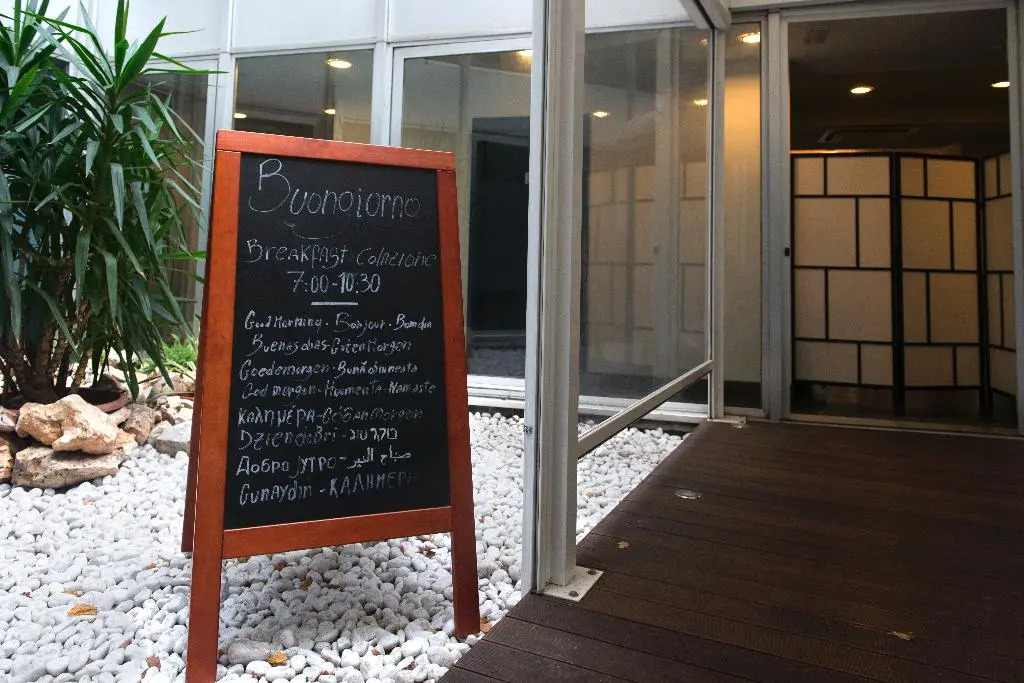 Buongiorno
Breakfast - Colazione
7:00-10:30
Good Morning - Bonjour - Bom dia
Buenos dias - Guten Morgen
Goedemorgen - Bună dimineata
God morgen - Huomenta - Namaste
ΚΑΛΗΜΕΡΑ - Morgen
Dzien dobri - בוקר טוב
Добро јутро - صباح الخير
Gunaydin - КАЛНМЕРА